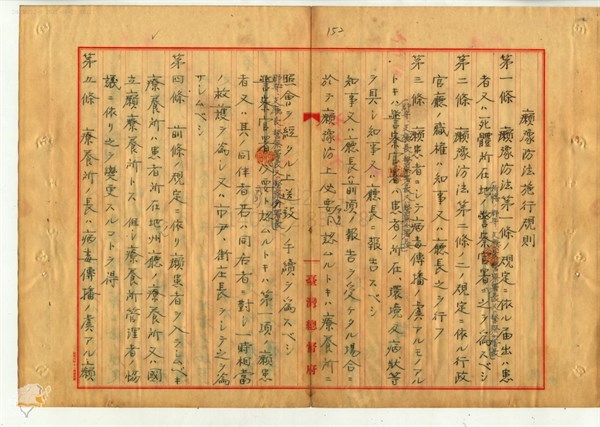 152
癩豫防法施行規則
第一條 癩豫防法第一條ノ規定ニ依ル届出ハ患
者又ハ死體所在地ノ警察官署ニ之ヲ爲スベシ
第二條 癩豫防法第二條ノ二ノ規定ニ依ル行政
官廳ノ職權ハ知事又ハ廳長之ヲ行フ
第三條 癩患者ニシテ病毒傳播ノ虞アルモノアル
トキハ警察官署ハ患者ノ所在、環境及病狀等
ヲ具シ知事又ハ廳長ニ報告スベシ
知事又ハ廳長前項ノ報告ヲ受ケタル場合ニ
於テ癩豫防上必要ト認ムルトキハ療養所ニ
臺灣總督府
照會ヲ經タル上送致ノ手續ヲ爲スベシ
警察官署必要ト認ムルトキハ第一項ノ癩患
者又ハ其ノ同伴者若ハ同居者ニ對シ一時相當
ノ救護ヲ爲シ又ハ市尹、街庄長ヲシテ之ヲ爲
サシムベシ
第四條 前條ノ規定ニ依リ癩患者ヲ入ラシムベキ
療養所ハ患者所在地州、廳ノ療養所又ハ國
立癩療養所トス 但シ療養所管理者ノ協
議ニ依リ之ヲ變更スルコトヲ得
第五條 療養所ノ長ハ病毒傳播ノ虞アル癩